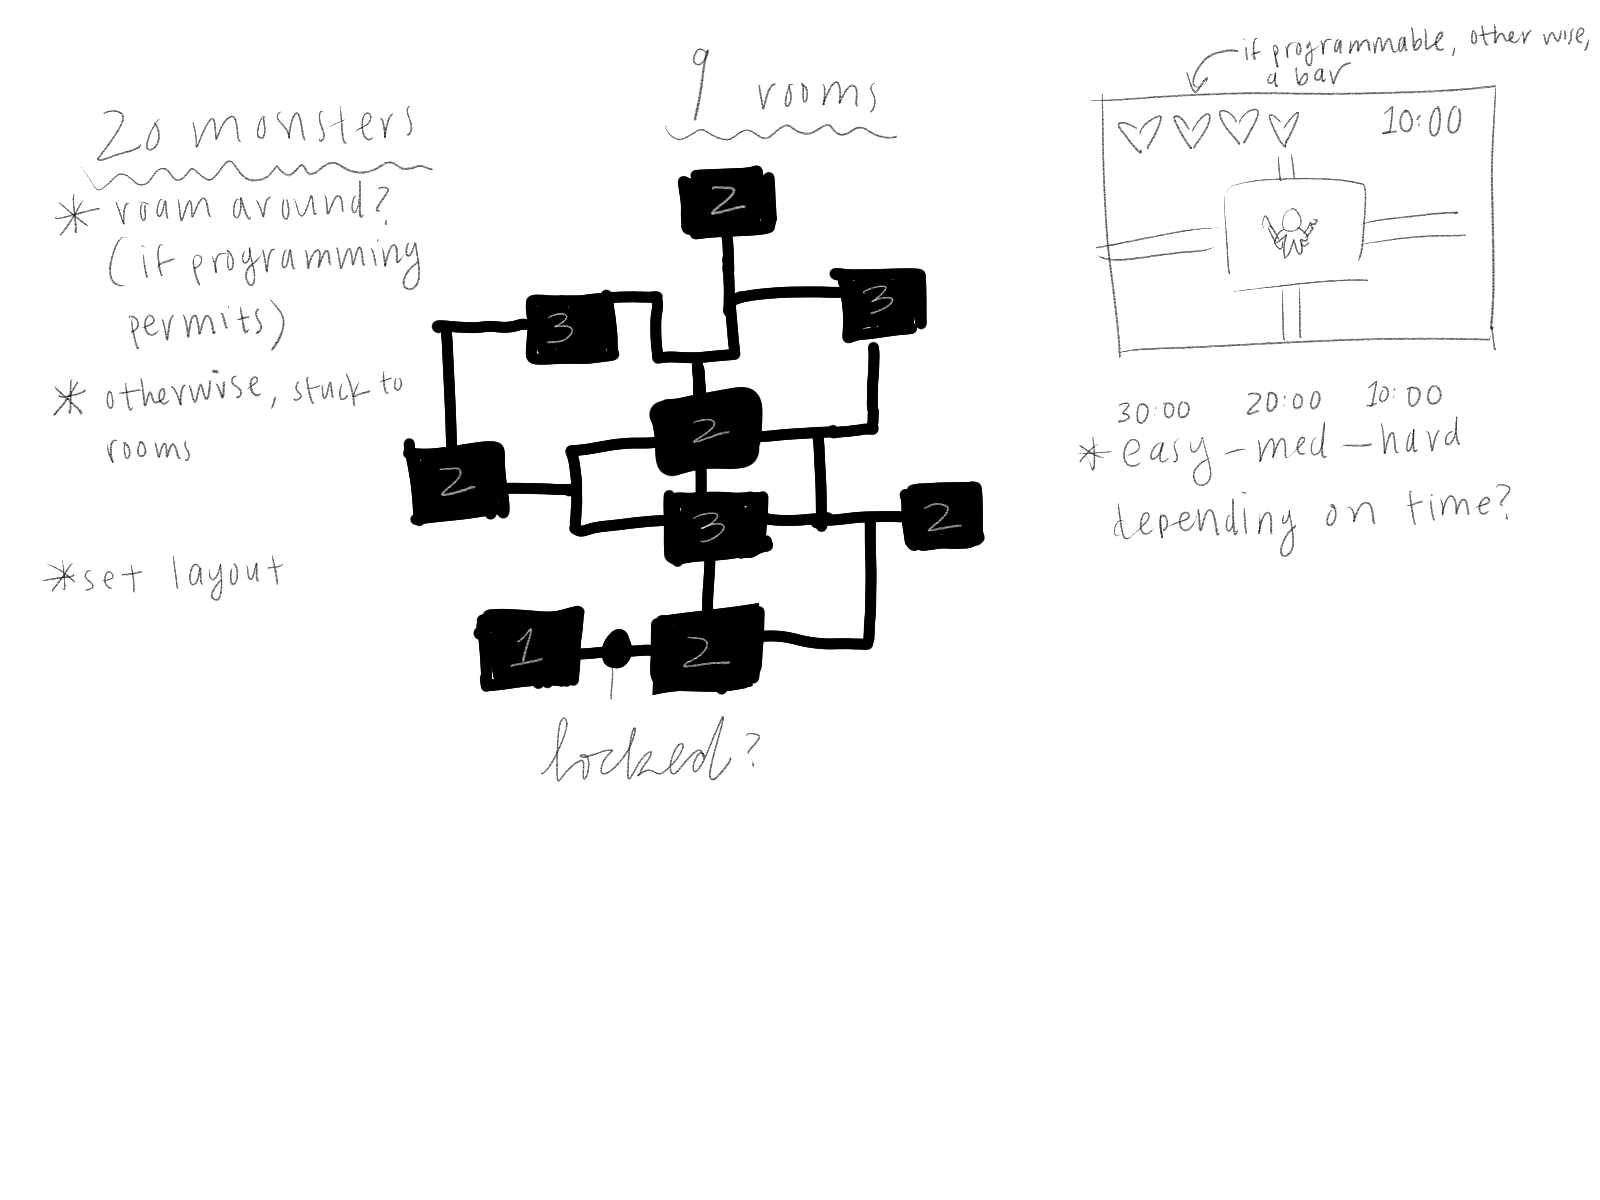 20 monsters
* roam around?
(if programming
permits)
* otherwise, stuck to
rooms
* set layout
9 rooms
2
3
3
2
2
3
2
1
2
locked?
if programmable, other wise,
a bar
10:00
30:00 20:00 10:00
* easy - med - hard
depending on time?